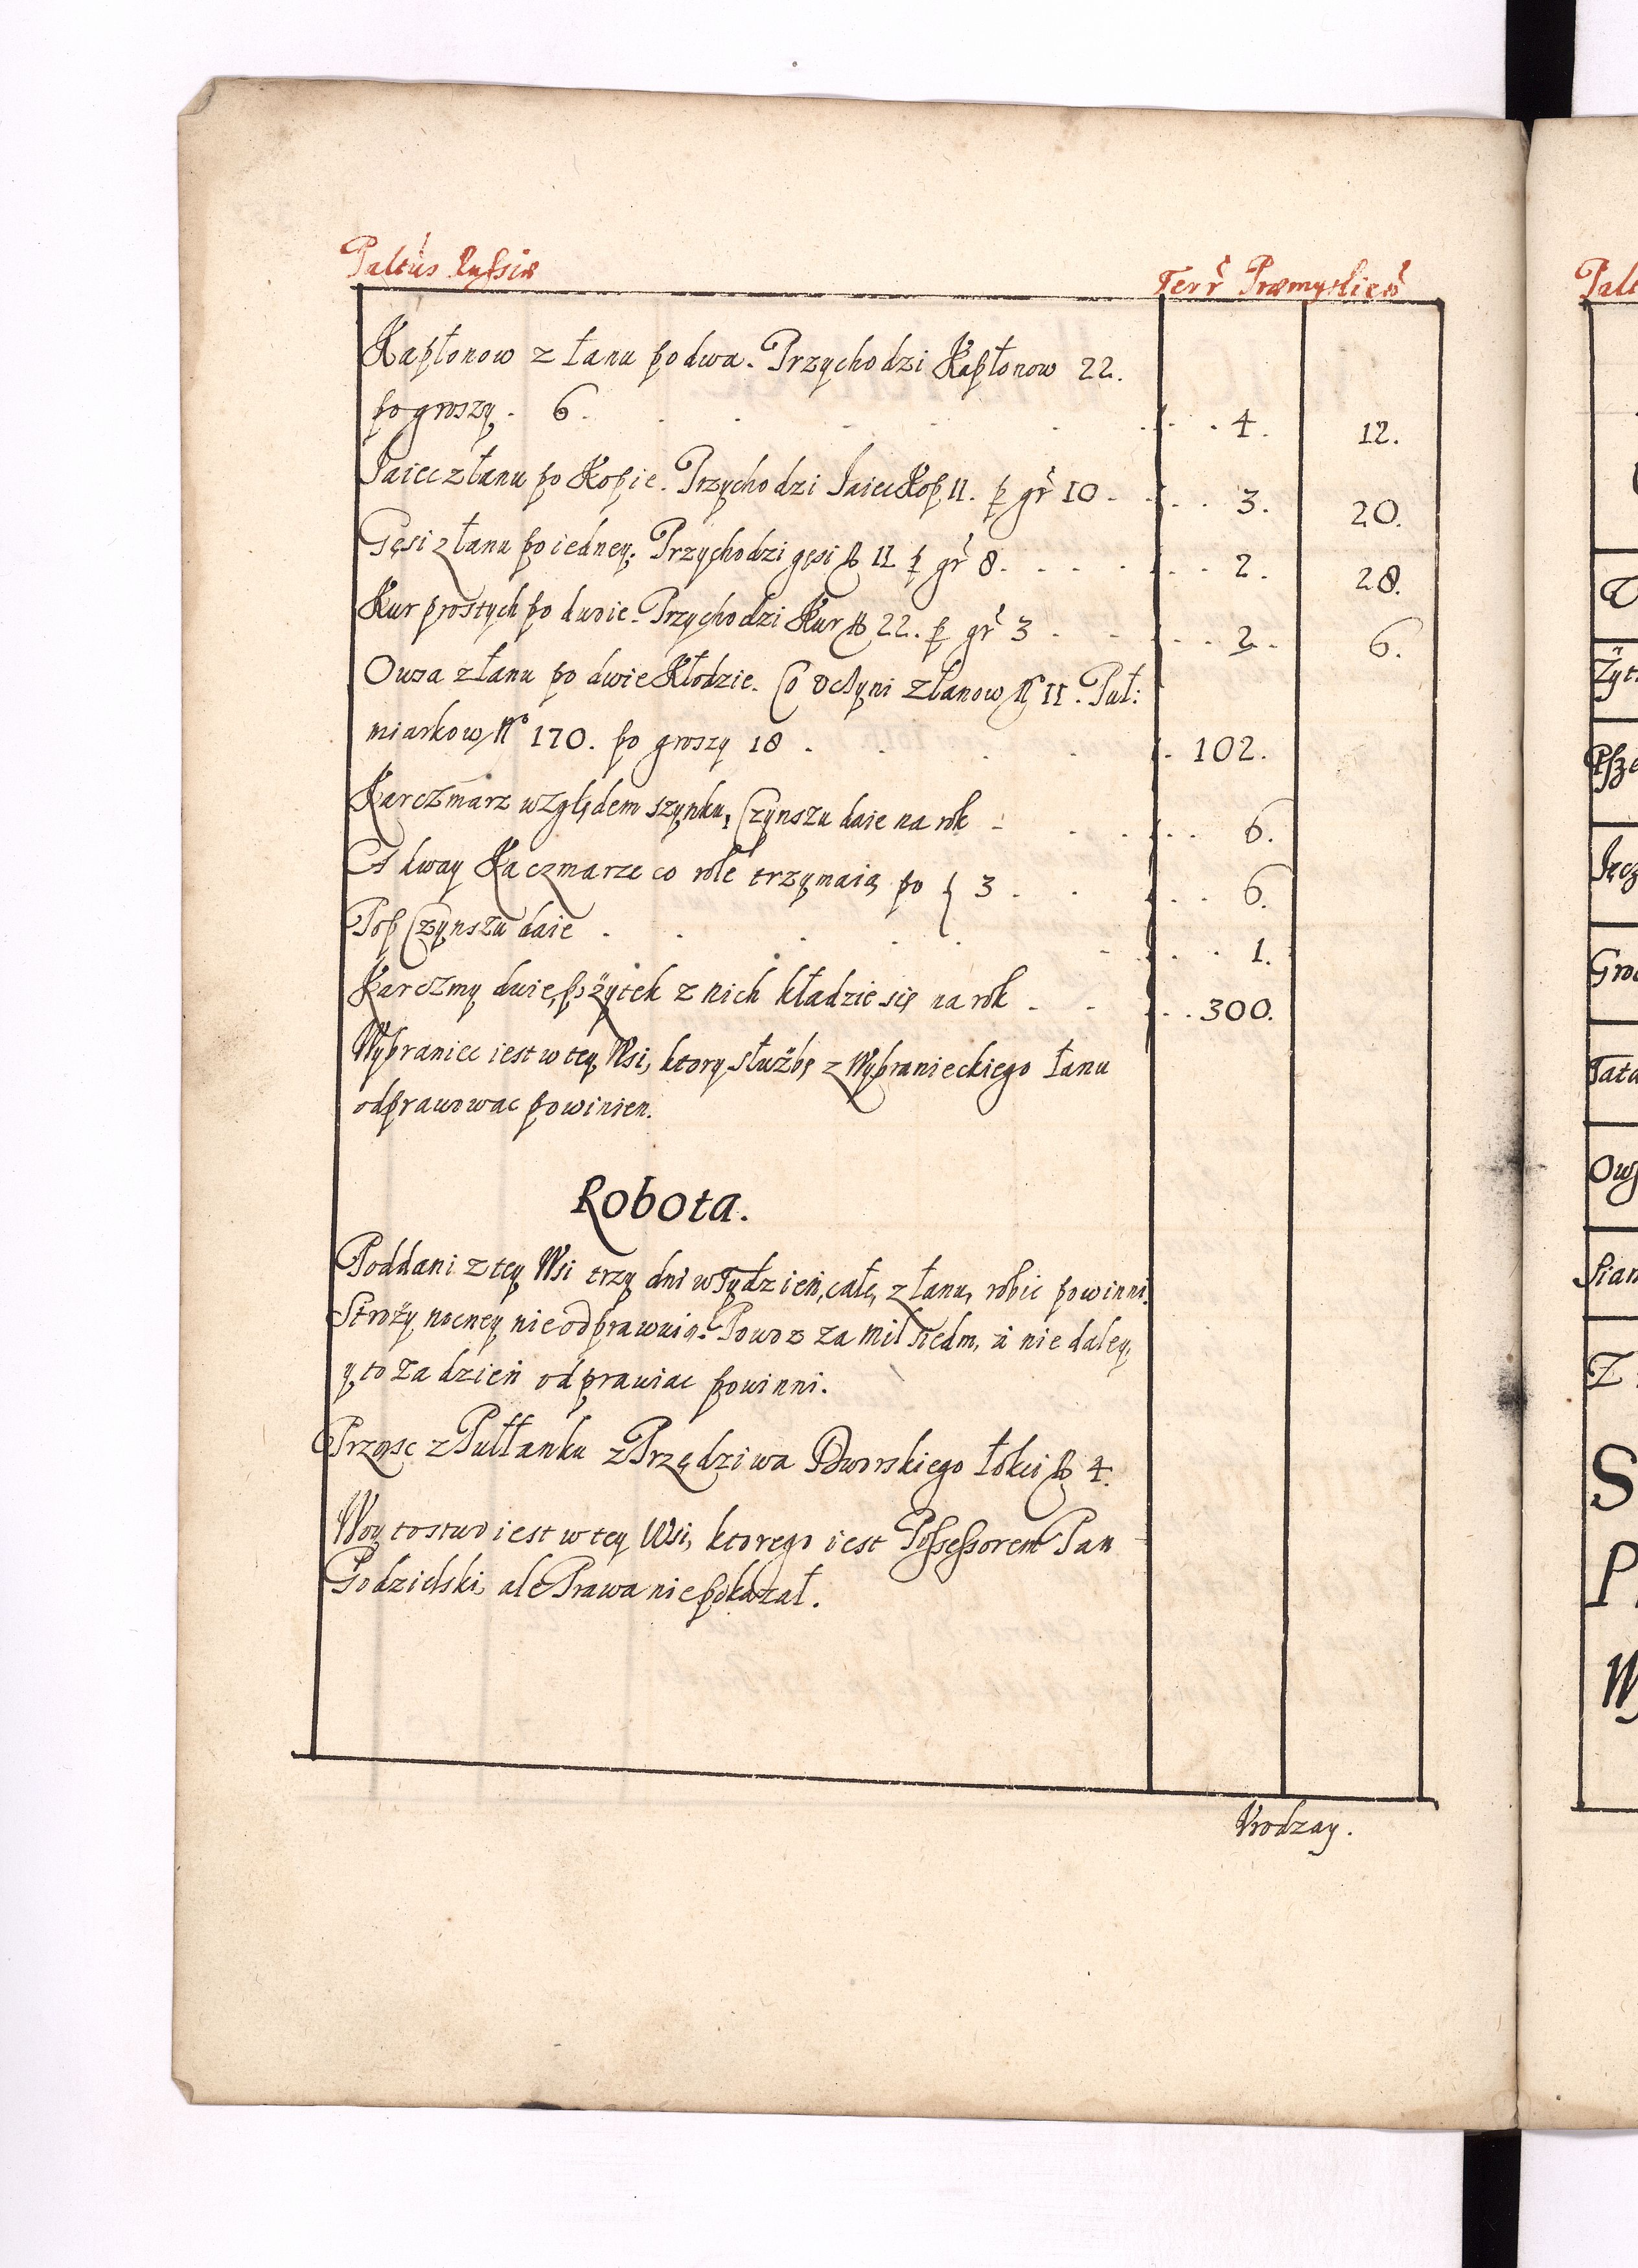 Paltus Russiæ Terr Præmyslien
Kapłonow z łanu po dwa. Przychodzi Kapłonow 22.
po groszy. 6. 4. 12.
Jaiec z łanu po Kopie. Przychodzi Jaiec Kop 11. p gr 10. 3. 20.
Gęsi z łanu po iedney. Przychodzi gęsi No 11 p gr 8. 2. 28.
Kur prostych po dwoie. Przychodzi Kur No 22. p gr 3. 2. 6.
Owsa z łanu po dwie Kłodzie. Co vczyni z łanow No 11. Puł:
miarkow No 170. po groszy 18. 102.
Karczmarz względem szynku, Czynszu daie na rok 6.
A dway Kaczmarze co role trzymaią po f 3. 6.
Pop Czynszu daie 1.
Karczmy dwie, pożytek z nich kładzie się na rok 300.
Wybraniec iest w tey Wsi, ktory służbę z Wybranieckiego łanu
odprawowac powinien.
Robota.
Poddani z tey Wsi trzy dni w Tydzień, całe, z łanu, robic powinni.
Stroży nocney nie odprawuią. Powoz za mil siedm, a nie daley,
y to za dzień odprawiac powinni.
Prząsc z Pułłanku z Przędziwa Dworskiego łokci No 4.
Woytostwo iest w tey Wsi, ktorego iest Possessorem Pan
Godzielski, ale Prawa nie pokazał.
Vrodzay.